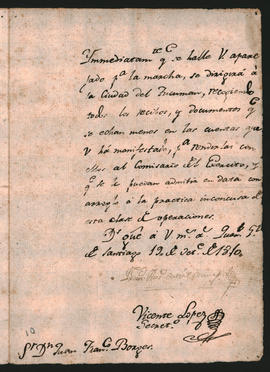 Immediatam.te q.e se halle V. apare
jado p.a la marcha, se dirigirá á
la Ciudad del Tucuman, recogiendo
todos los recibos, y documentos q.e
se echan menos en las cuentas que
V. há manifestado, p.a rendirlas con
ellos al Comisario del Exercito, y
q.e se le puedan admitir en data con
arreglo á la practica inconcusa de
esta clase de operaciones.
D.s gue á V. m.s a.s
de Santiago 12 de de 1810.
Vicente Lopez
Secret.o
10
S.or D.n Juan Fran.co Borges.